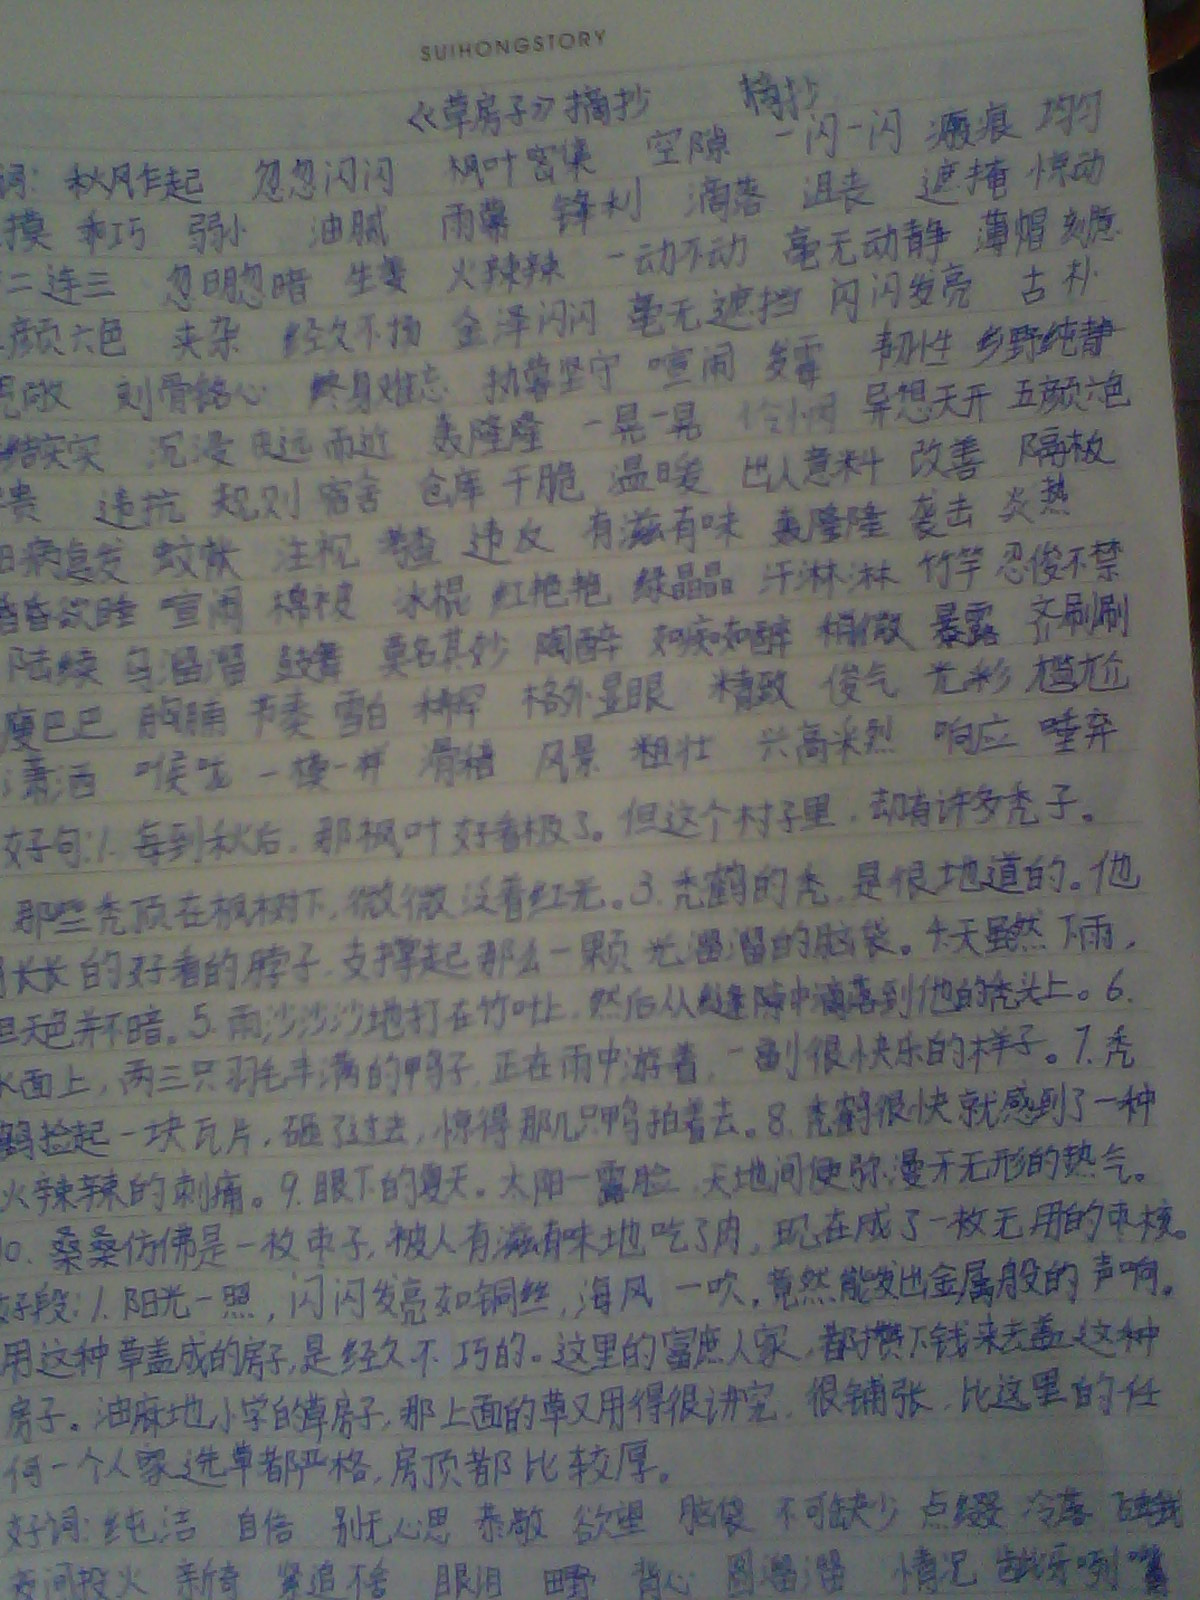 SUIHONGSTORY
《草房子》摘抄 摘抄
词: 秋风乍起 忽忽闪闪 枫叶密集 空隙 一闪一闪 瘢痕 均匀
摸 乖巧 弱小 油腻 雨幕 锋利 滴落 沮丧 遮掩 惊动
二连三 忽明忽暗 生姜 火辣辣 一动不动 毫无动静 薄帽 刻意
颜六色 夹杂 经久不 金泽闪闪 毫无遮挡 闪闪发亮 古朴
刻骨铭心 终身难忘 执着坚守 喧闹 发霉 韧性 乡野纯静
结实实 沉浸 由远而近 轰隆隆 一晃一晃 异想天开 五颜六色
贵 违抗 规则 宿舍 仓库 干脆 温暖 出人意料 改善 隔板
旧病复发 蚊帐 注视 考查 违反 有滋有味 轰隆隆 袭击 炎热
昏昏欲睡 喧闹 棉被 冰棍 红艳艳 绿晶晶 汗淋淋 竹竿 忍俊不禁
陆续 乌溜溜 鼓舞 莫名其妙 陶醉 如痴如醉 稍微 暴露 齐刷刷
瘦巴巴 胸脯 节奏 雪白 格外显眼 精致 俊气 光彩 尴尬
潇洒 喉咙 一模一样 滑稽 风景 粗壮 兴高采烈 响应 唾弃
好句:1. 每到秋后,那枫叶好看极了。但这个村子里,却有许多秃子。
那些秃顶在枫树下,微微泛着红光。3.秃鹤的秃,是很地道的。他
长长的好看的脖子,支撑起那么一颗光溜溜的脑袋。4.天虽然下雨,
但天色并不暗。5.雨沙沙沙地打在竹叶上,然后从缝隙中滴落到他的秃头上。6.
水面上,两三只羽毛丰满的鸭子,正在雨中游着,一副很快乐的样子。7.秃
鹤捡起一块瓦片,砸了过去,惊得那几只鸭拍着去。8.秃鹤很快就感到了一种
火辣辣的刺痛。9.眼下的夏天。太阳一露脸,天地间便弥漫牙无形的热气。
10. 桑桑仿佛是一枚枣子,被人有滋有味地吃了肉,现在成了一枚无用的枣核。
好段:1.阳光一照,闪闪发亮如铜丝,海风一吹,竟然能发出金属般的声响。
用这种草盖成的房子,是经久不巧的。这里的富庶人家,都攒下钱来去盖这种
房子。油麻地小学的草房子,那上面的草又用得很讲究,很铺张,比这里的任
何一个人家选草都严格,房顶都比较厚。
好词: 纯洁 自信 别无心思 恭敬 欲望 脑袋 不可缺少 点缀 冷落 飞蛾
夜间投火 新奇 紧追不舍 眼泪 田野 背心 圆溜溜 情况 龇牙咧嘴